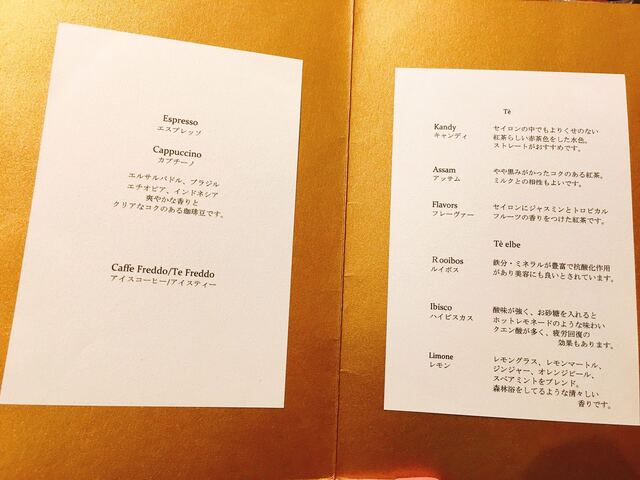 Espresso
エスプレッソ
Cappuccino
カプチーノ
エルサルバドル、ブラジル
エチオピア、インドネシア
爽やかな香りと
クリアなコクのある珈琲豆です。
Caffe Freddo/Te Freddo
アイスコーヒー/アイスティー
Tè
Kandy
キャンディ
セイロンの中でもよりくせのない
紅茶らしい赤茶色をした水色。
ストレートがおすすめです。
Assam
アッサム
やや黒みがかったコクのある紅茶。
ミルクとの相性もよいです。
Flavors
フレーヴァー
セイロンにジャスミンとトロピカル
フルーツの香りをつけた紅茶です。
Tè elbe
Rooibos
ルイボス
鉄分・ミネラルが豊富で抗酸化作用
があり美容にも良いとされています。
Ibisco
ハイビスカス
酸味が強く、お砂糖を入れると
ホットレモネードのような味わい
クエン酸が多く、疲労回復の
効果もあります。
Limone
レモン
レモングラス、レモンマートル、
ジンジャー、オレンジピール、
スペアミントをブレンド。
森林浴をしてるような清々しい
香りです。